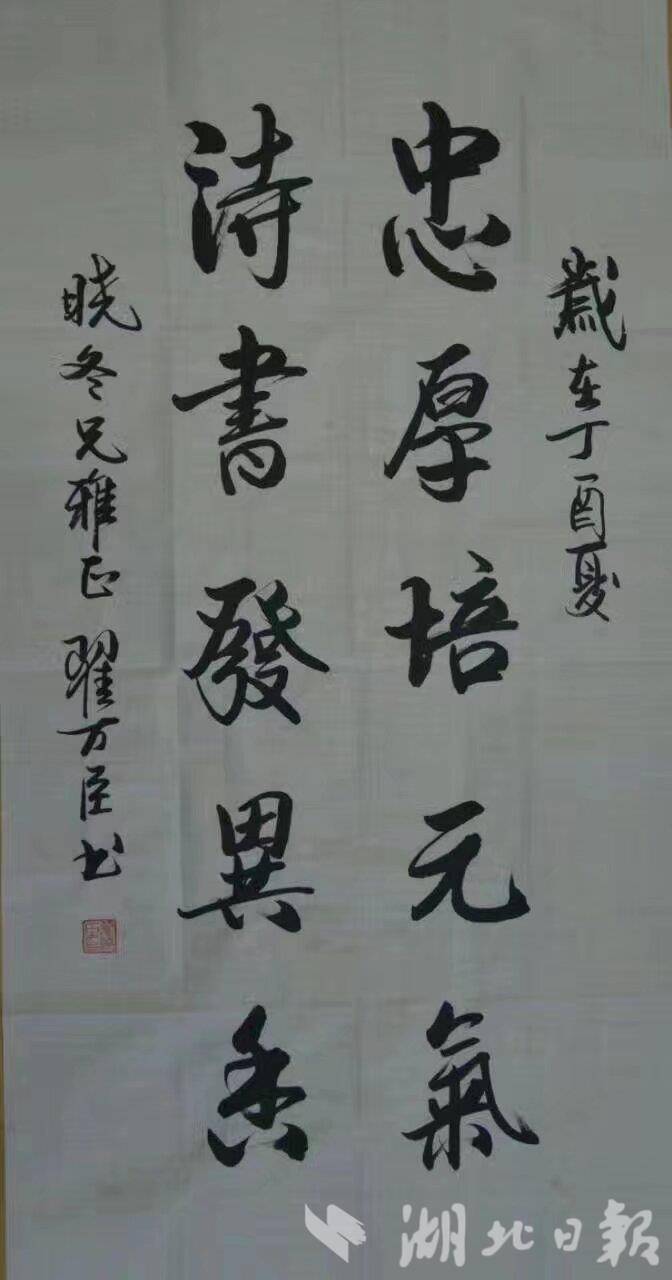 歲在丁酉夏
忠厚培元氣
詩書發異香
晓冬兄雅正 翟万臣书
湖北日報